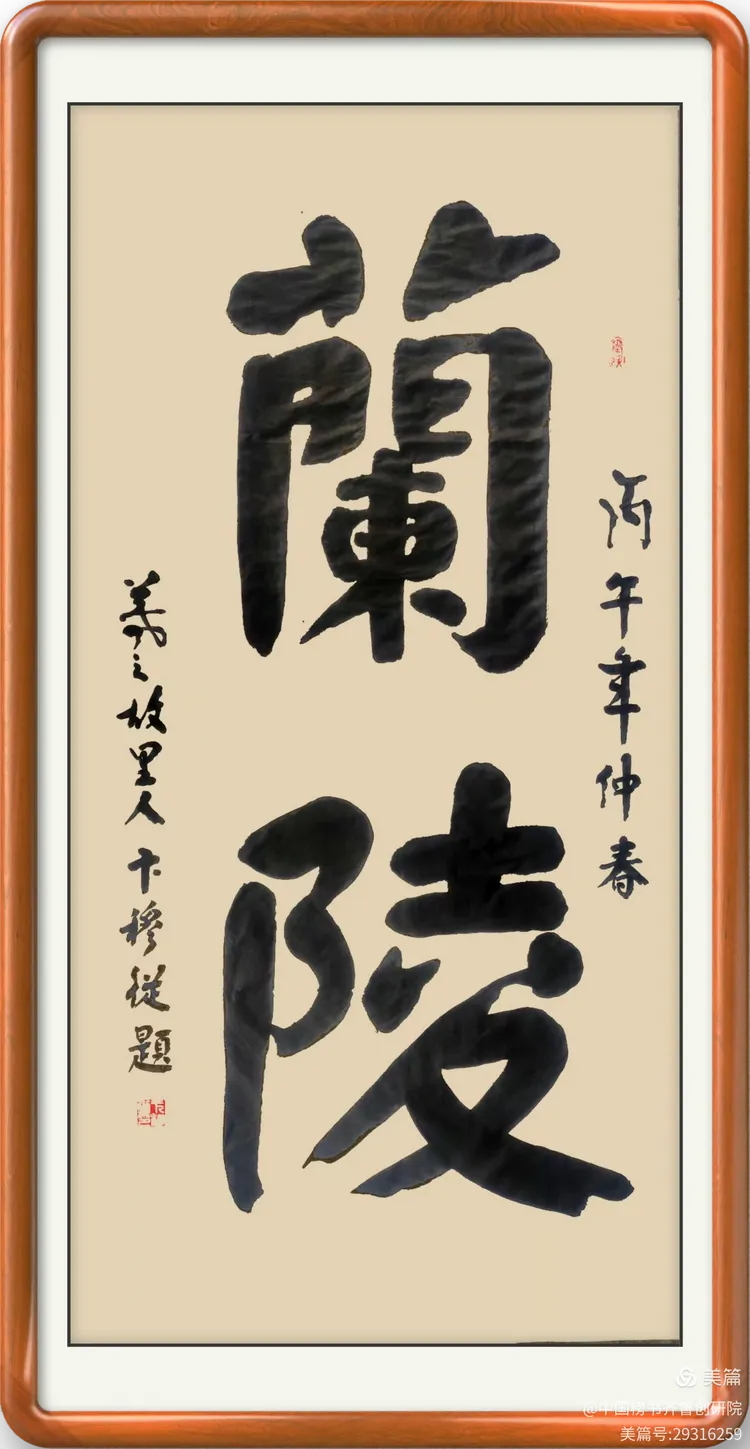 丙午年仲春
蘭陵
羲之故里人卞穆從題
美篇
@中国榜书齐鲁创研院
美篇号:29316259